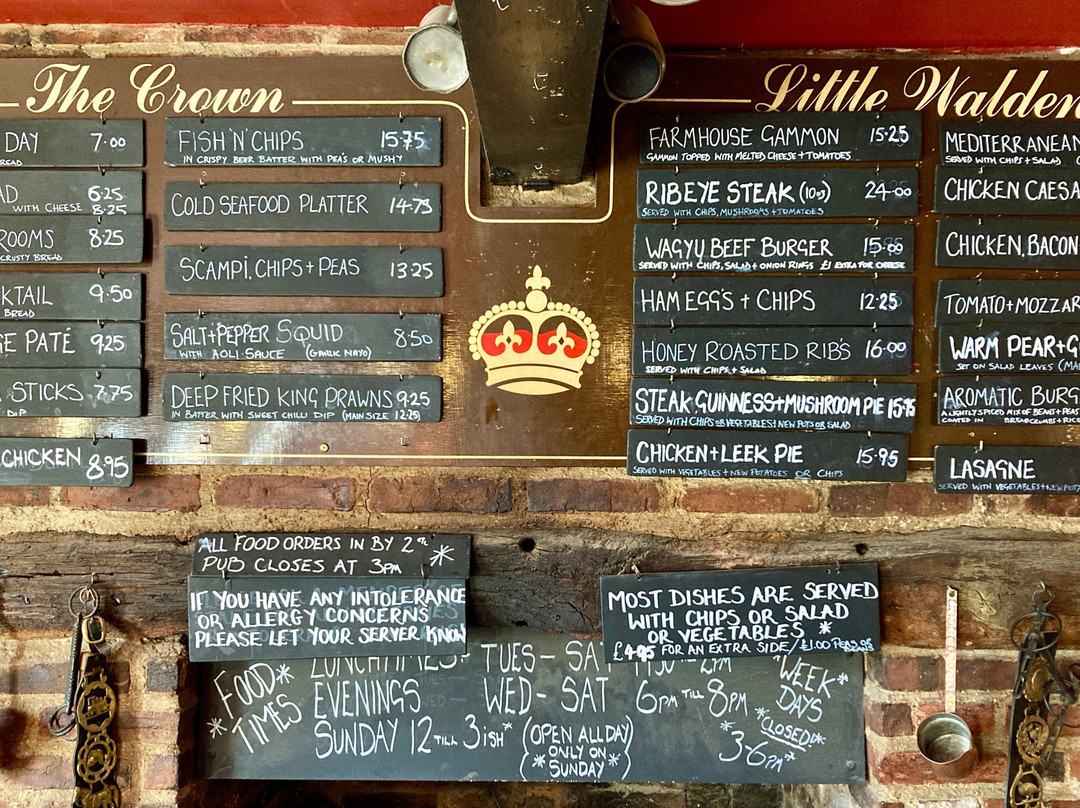 The Crown
Little Walden
DAY 7.00
READ
AD 6.25
WITH CHEESE 8.25
ROOMS 8.25
CRUSTY BREAD
KTAIL 9.50
BREAD
GE PATÉ 9.25
STICKS 7.75
DIP
CHICKEN 8.95
FISH 'N' CHIPS 15.75
IN CRISPY BEER BATTER WITH PEAS OR MUSHY
COLD SEAFOOD PLATTER 14.75
SCAMPI, CHIPS + PEAS 13.25
SALT + PEPPER SQUID 8.50
WITH AOLI SAUCE (GARLIC MAYO)
DEEP FRIED KING PRAWNS 9.25
IN BATTER WITH SWEET CHILLI DIP (MAIN SIZE 12.25)
FARMHOUSE GAMMON 15.25
GAMMON TOPPED WITH MELTED CHEESE + TOMATOES
RIBEYE STEAK (10oz) 24.00
SERVED WITH CHIPS, MUSHROOMS + TOMATOES
WAGYU BEEF BURGER 15.00
SERVED WITH CHIPS, SALAD + ONION RINGS £1 EXTRA FOR CHEESE
HAM EGG'S + CHIPS 12.25
HONEY ROASTED RIB'S 16.00
SERVED WITH CHIPS + SALAD
STEAK, GUINNESS + MUSHROOM PIE 15.95
SERVED WITH CHIPS OR VEGETABLES! NEW POTS OR SALAD
CHICKEN + LEEK PIE 15.95
SERVED WITH VEGETABLES + NEW POTATOES OR CHIPS
MEDITERRANEAN
SERVED WITH CHIPS + SALAD
CHICKEN CAESA
CHICKEN, BACON
TOMATO + MOZZAR
WARM PEAR + G
SET ON SALAD LEAVES (MA
AROMATIC BURG
A LIGHTLY SPICED MIX OF BEANS + PEAS
COATED IN BREADCUMBS + RICE
LASAGNE
SERVED WITH VEGETABLES + NEW POT
ALL FOOD ORDERS IN BY 2PM
PUB CLOSES AT 3PM *
IF YOU HAVE ANY INTOLERANCE
OR ALLERGY CONCERNS
PLEASE LET YOUR SERVER KNOW
MOST DISHES ARE SERVED
WITH CHIPS OR SALAD
OR VEGETABLES *
£4.95 FOR AN EXTRA SIDE/£1.00 PEAS OR
*FOOD*
*TIMES
LUNCHTIMES TUES - SAT
EVENINGS WED - SAT 6PM TILL 8PM
SUNDAY 12 TILL 3ISH*
(OPEN ALL DAY
ONLY ON
*SUNDAY*)
*WEEK*
DAYS
*CLOSED!*
*3-6PM*